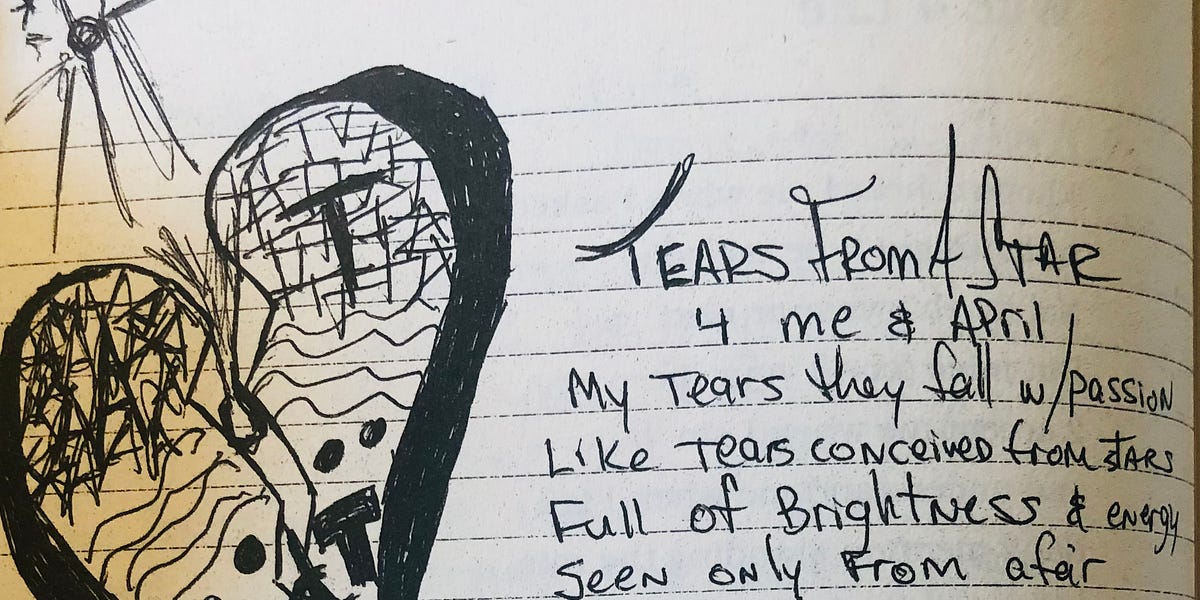 T
T
TEARS FROM A STAR
4 me & April
My Tears they fall w/passion
Like Tears conceived from STARS
Full of Brightness & energy
Seen only From afar